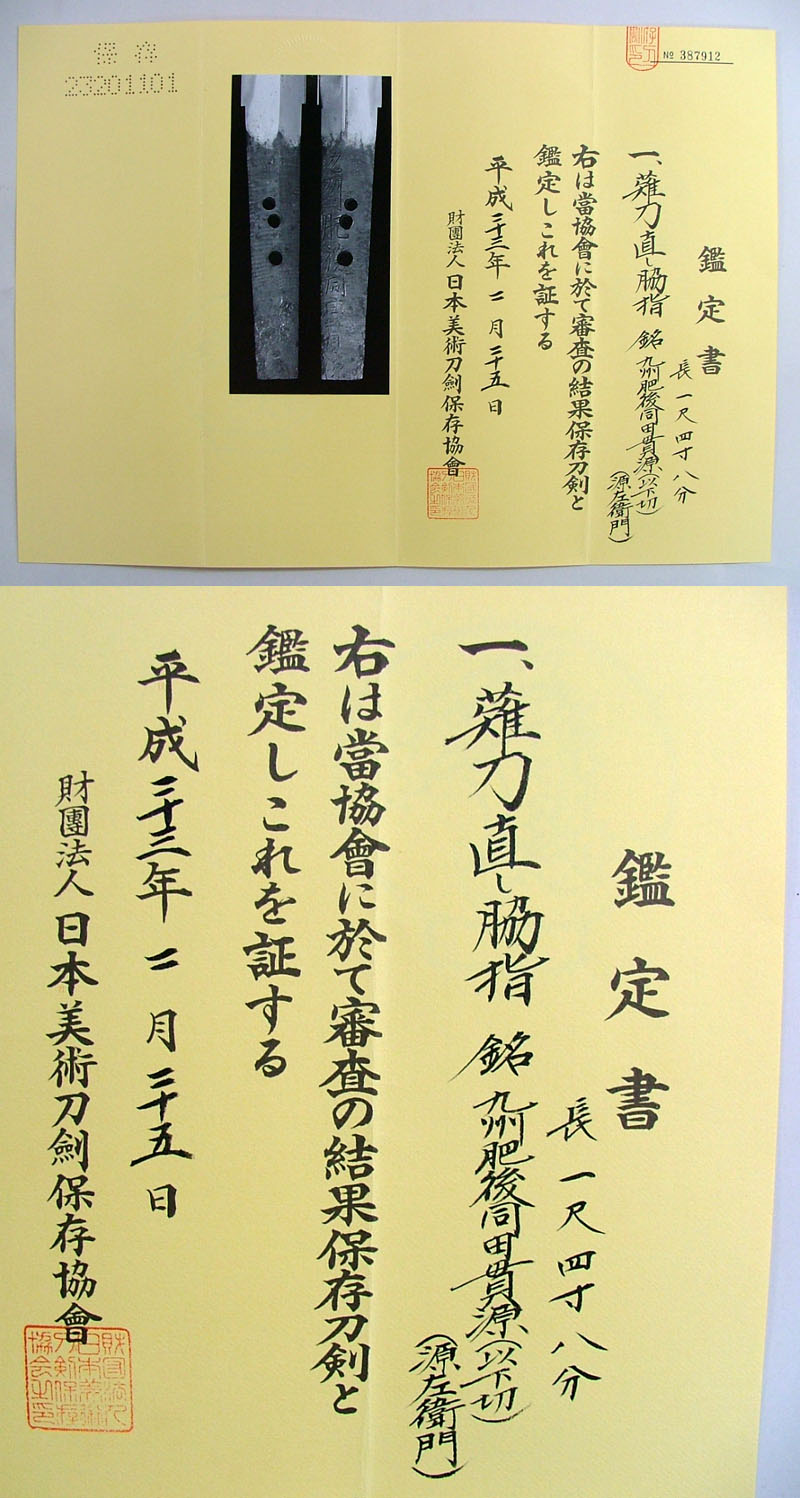 保存
23201101
№ 387912
鑑定書
一、薙刀直し脇指 銘 九州肥後同田貫源(以下切)
(源左衛門)
長一尺四寸八分
右は當協會に於て審査の結果保存刀剣と
鑑定しこれを証する
平成二十三年二月二十五日
財團法人日本美術刀劍保存協會
鑑定書
長一尺四寸八分
一、薙刀直し脇指 銘 九州肥後同田貫源(以下切)
(源左衛門)
右は當協會に於て審査の結果保存刀剣と
鑑定しこれを証する
平成二十三年二月二十五日
財團法人日本美術刀劍保存協會